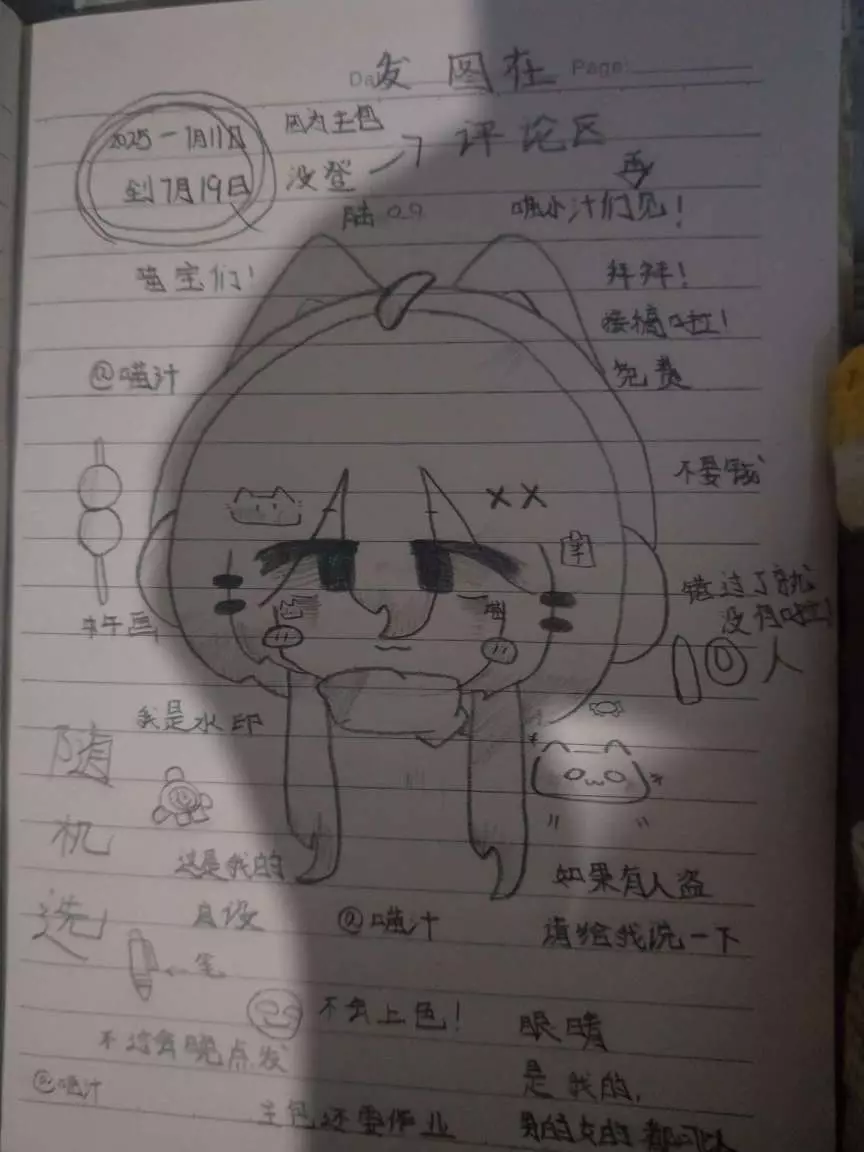 Page:
发图在
评论区
2025-7月11日
到7月19日
因为主包
没登
陆
再
喵小汁们见！
喵宝们！
拜拜！
接稿啦！
免费
@喵汁
不要钱
错过了就
没有啦！
10人
我是水印
随
机
选
这是我的
自设
@喵汁
如果有人盗
请给我说一下
←笔
不会上色！
眼睛
是我的，
不过会晚点发
@喵汁
主包还要作业
男的女的都可以